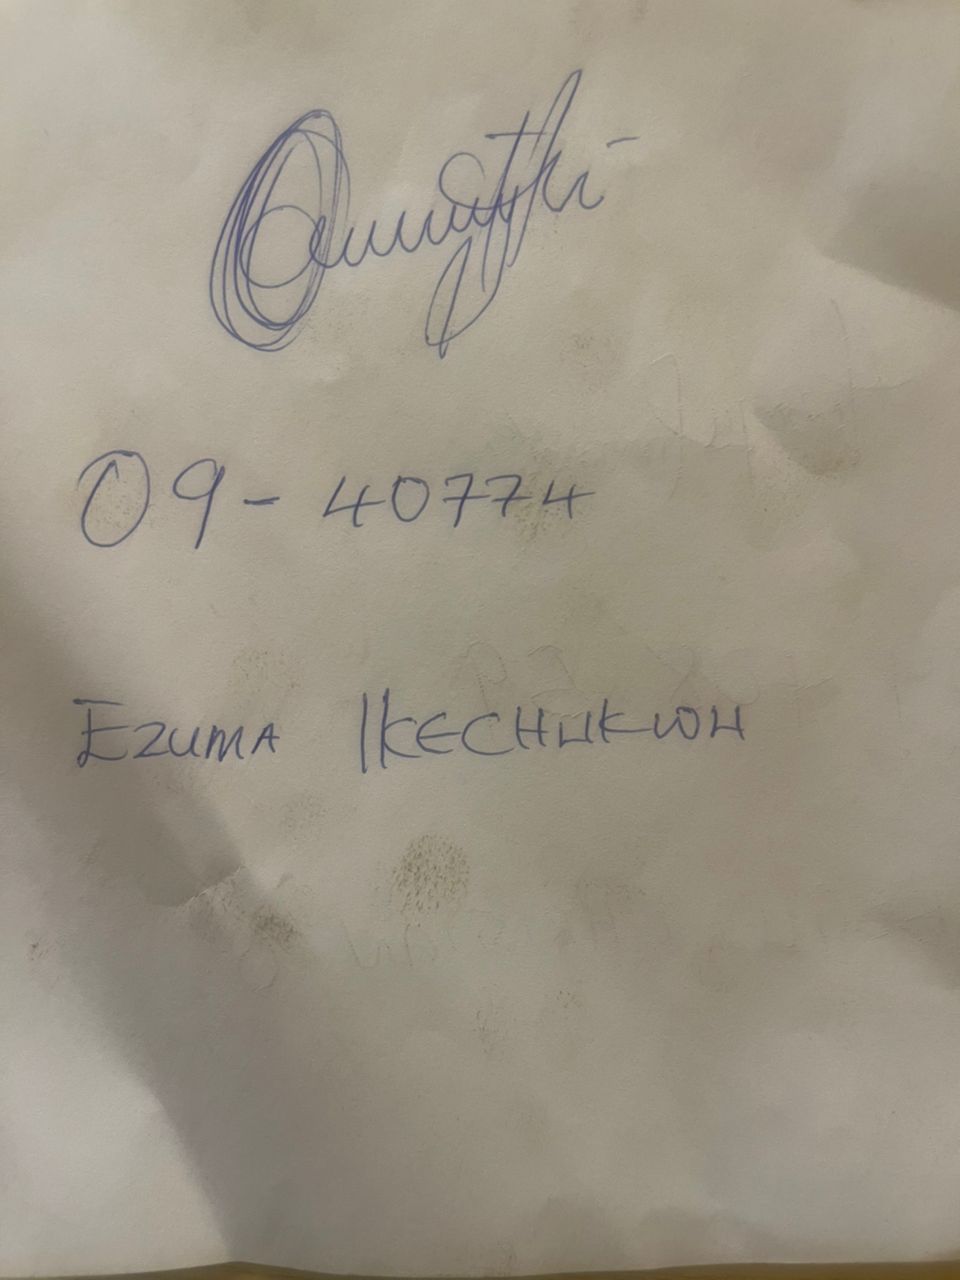 09-40774
EZUMA IKECHUKWU